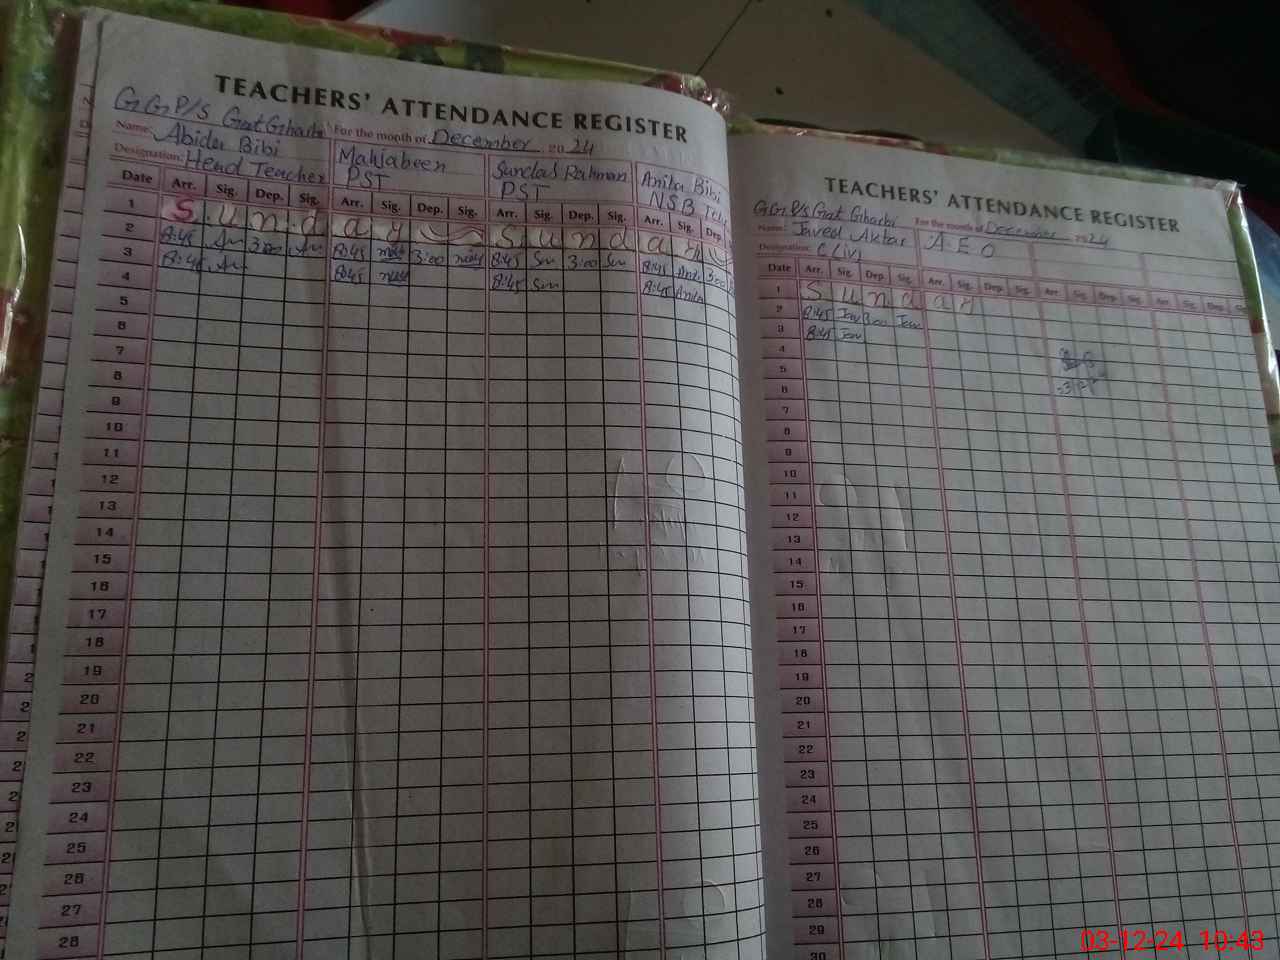 TEACHERS' ATTENDANCE REGISTER
GGP/S Goat Gharbi
Name: Abida Bibi For the month of December 2024
Designation: Head Teacher Mahjabeen PST Sundas Rahman PST Anita Bibi NSB
Date Arr. Sig. Dep. Sig. Arr. Sig. Dep. Sig. Arr. Sig. Dep. Sig. Arr. Sig. Dep.
1 S u n d a y S u n d a y
2 8:45 3:00 8:45 3:00 8:45 Sun 3:00 Sun 8:45 3:00
3 8:45 8:45 8:45 Sun 8:45 Anita
4
5
6
7
8
9
10
11
12
13
14
15
16
17
18
19
20
21
22
23
24
25
26
27
28
TEACHERS' ATTENDANCE REGISTER
GGP/S Goat Gharbi For the month of December 2024
Name: Javed Aktar A.E.O
Designation: C (iv)
Date Arr. Sig. Dep. Sig. Arr. Sig. Dep. Sig. Arr. Sig. Dep. Sig. Arr. Sig. Dep.
1 S u n d a y
2 8:45 Jav 3:00 Jav
3 8:45 Jav
4
5
6
7
8
9
10
11
12
13
14
15
16
17
18
19
20
21
22
23
24
25
26
27
28
29
30
03-12-24 10:43